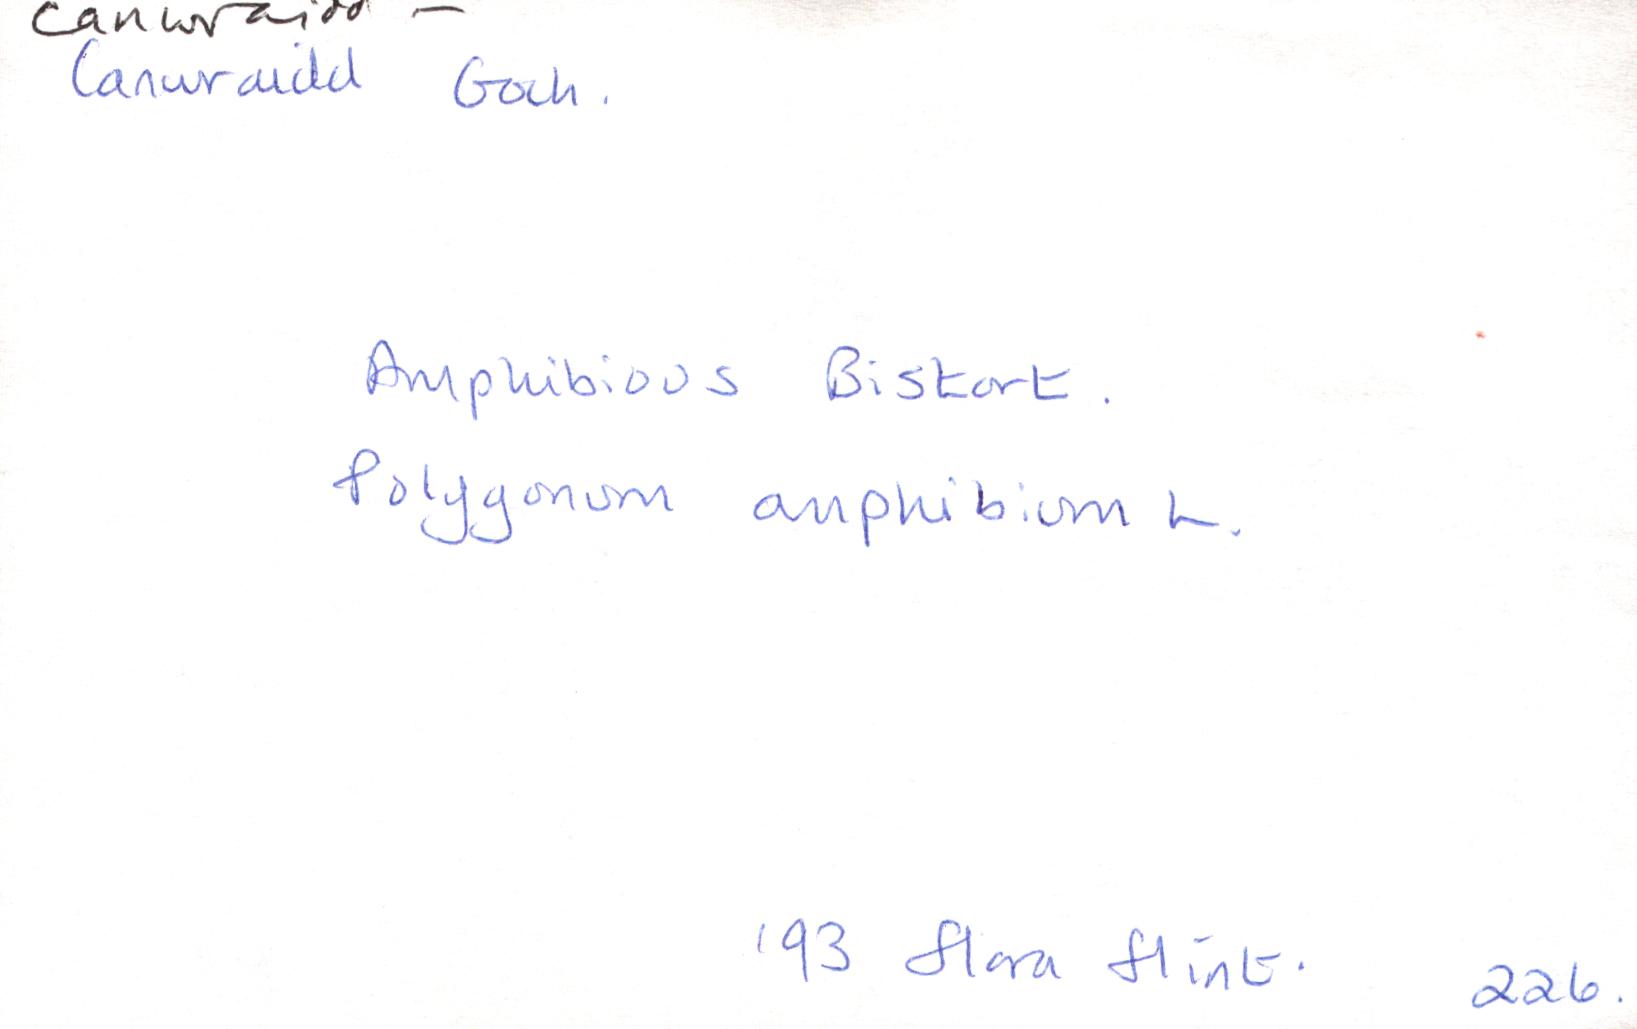 canwraidd –
Canwraidd Goch.
Amphibious Bistort.
Polygonum amphibium L.
'93 Flora Flint.
226.